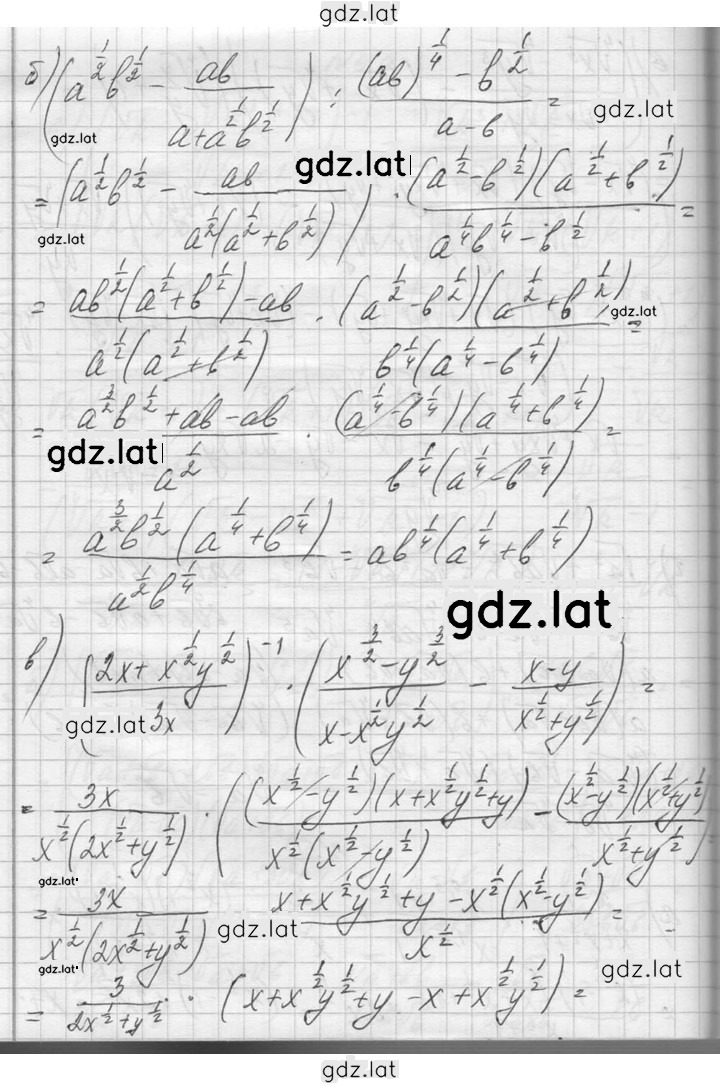 gdz.lat
б) (a^{1/2}b^{1/2} - ab/(a+a^{1/2}b^{1/2})) : ((ab)^{1/4} - b^{1/2})/(a-b) =
gdz.lat
gdz.lat
gdz.lat
= (a^{1/2}b^{1/2} - ab/(a^{1/2}(a^{1/2}+b^{1/2}))) · ((a^{1/2}-b^{1/2})(a^{1/2}+b^{1/2}))/(a^{1/4}b^{1/4}-b^{1/2}) =
gdz.lat
= (ab^{1/2}(a^{1/2}+b^{1/2})-ab)/(a^{1/2}(a^{1/2}+b^{1/2})) · ((a^{1/2}-b^{1/2})(a^{1/2}+b^{1/2}))/(b^{1/4}(a^{1/4}-b^{1/4})) =
gdz.lat
= (a^{3/2}b^{1/2}+ab-ab)/a^{1/2} · ((a^{1/4}-b^{1/4})(a^{1/4}+b^{1/4}))/(b^{1/4}(a^{1/4}-b^{1/4})) =
gdz.lat
= (a^{3/2}b^{1/2}(a^{1/4}+b^{1/4}))/(a^{1/2}b^{1/4}) = ab^{1/4}(a^{1/4}+b^{1/4})
gdz.lat
в) ((2x+x^{1/2}y^{1/2})/3x)^{-1} · ((x^{3/2}-y^{3/2})/(x-x^{1/2}y^{1/2}) - (x-y)/(x^{1/2}+y^{1/2})) =
gdz.lat
= 3x/(x^{1/2}(2x^{1/2}+y^{1/2})) · (((x^{1/2}-y^{1/2})(x+x^{1/2}y^{1/2}+y))/(x^{1/2}(x^{1/2}-y^{1/2})) - ((x^{1/2}-y^{1/2})(x^{1/2}+y^{1/2}))/(x^{1/2}+y^{1/2})) =
gdz.lat
= 3x/(x^{1/2}(2x^{1/2}+y^{1/2})) · (x+x^{1/2}y^{1/2}+y-x^{1/2}(x^{1/2}-y^{1/2}))/x^{1/2} =
gdz.lat
gdz.lat
gdz.lat
= 3/(2x^{1/2}+y^{1/2}) · (x+x^{1/2}y^{1/2}+y-x+x^{1/2}y^{1/2}) =
gdz.lat